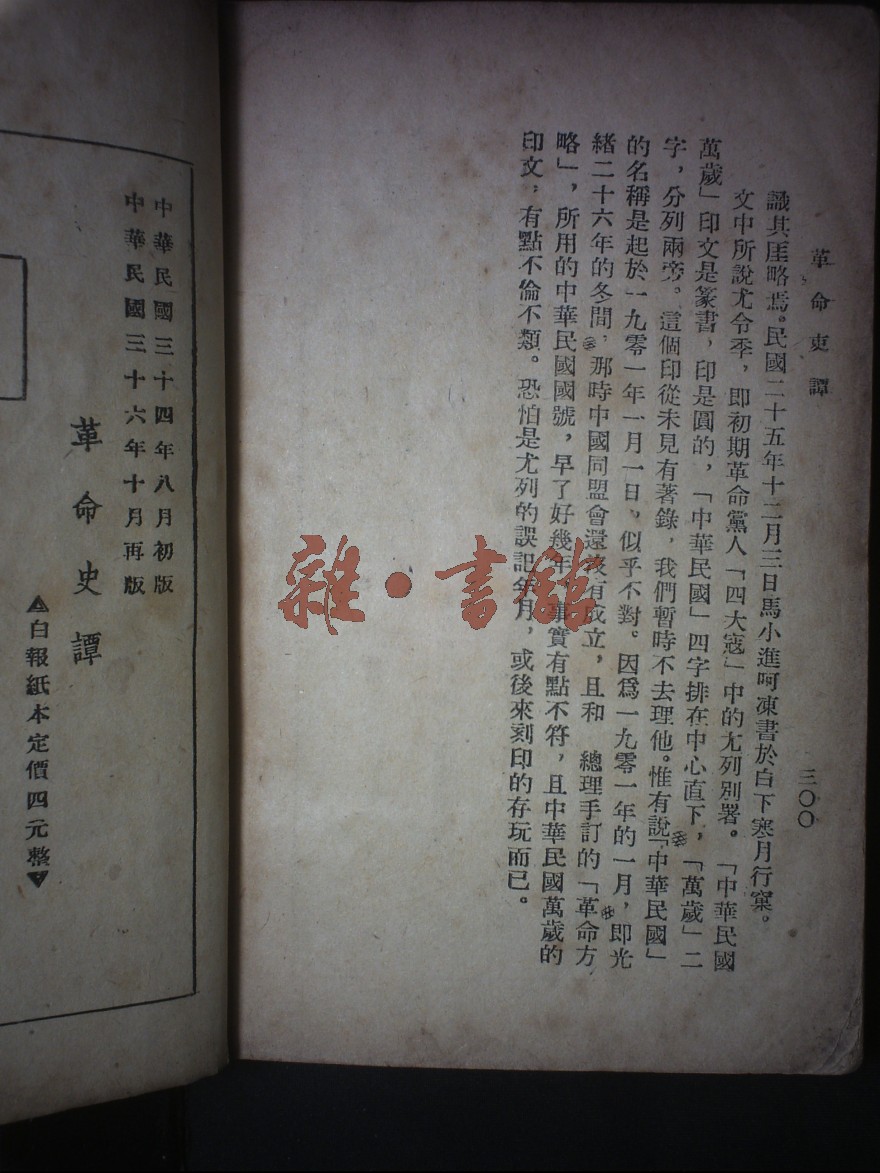 革命史譚
三〇〇
識其厓略焉。民國二十五年十二月三日馬小進呵凍書於白下寒月行窠。
文中所說尤令季，卽初期革命黨人「四大寇」中的尤列別署。「中華民國
萬歲」印文是篆書，印是圓的，「中華民國」四字排在中心直下，「萬歲」二
字，分列兩旁。這個印從未見有著錄，我們暫時不去理他。惟有說「中華民國」
的名稱是起於一九零一年一月一日，似乎不對。因爲一九零一年的一月，卽光
緒二十六年的冬間，那時中國同盟會還沒有成立，且和　總理手訂的「革命方
略」，所用的中華民國國號，早了好幾年，事實有點不符，且中華民國萬歲的
印文，有點不倫不類。恐怕是尤列的誤記年月，或後來刻印的存玩而已。
中華民國三十四年八月初版
中華民國三十六年十月再版
革命史譚
▲白報紙本定價四元整▼
雜·書館